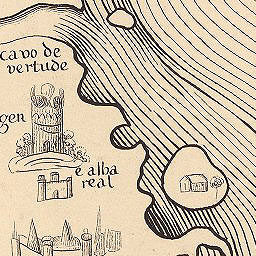 cavo de
vertude
gen
e alba
real